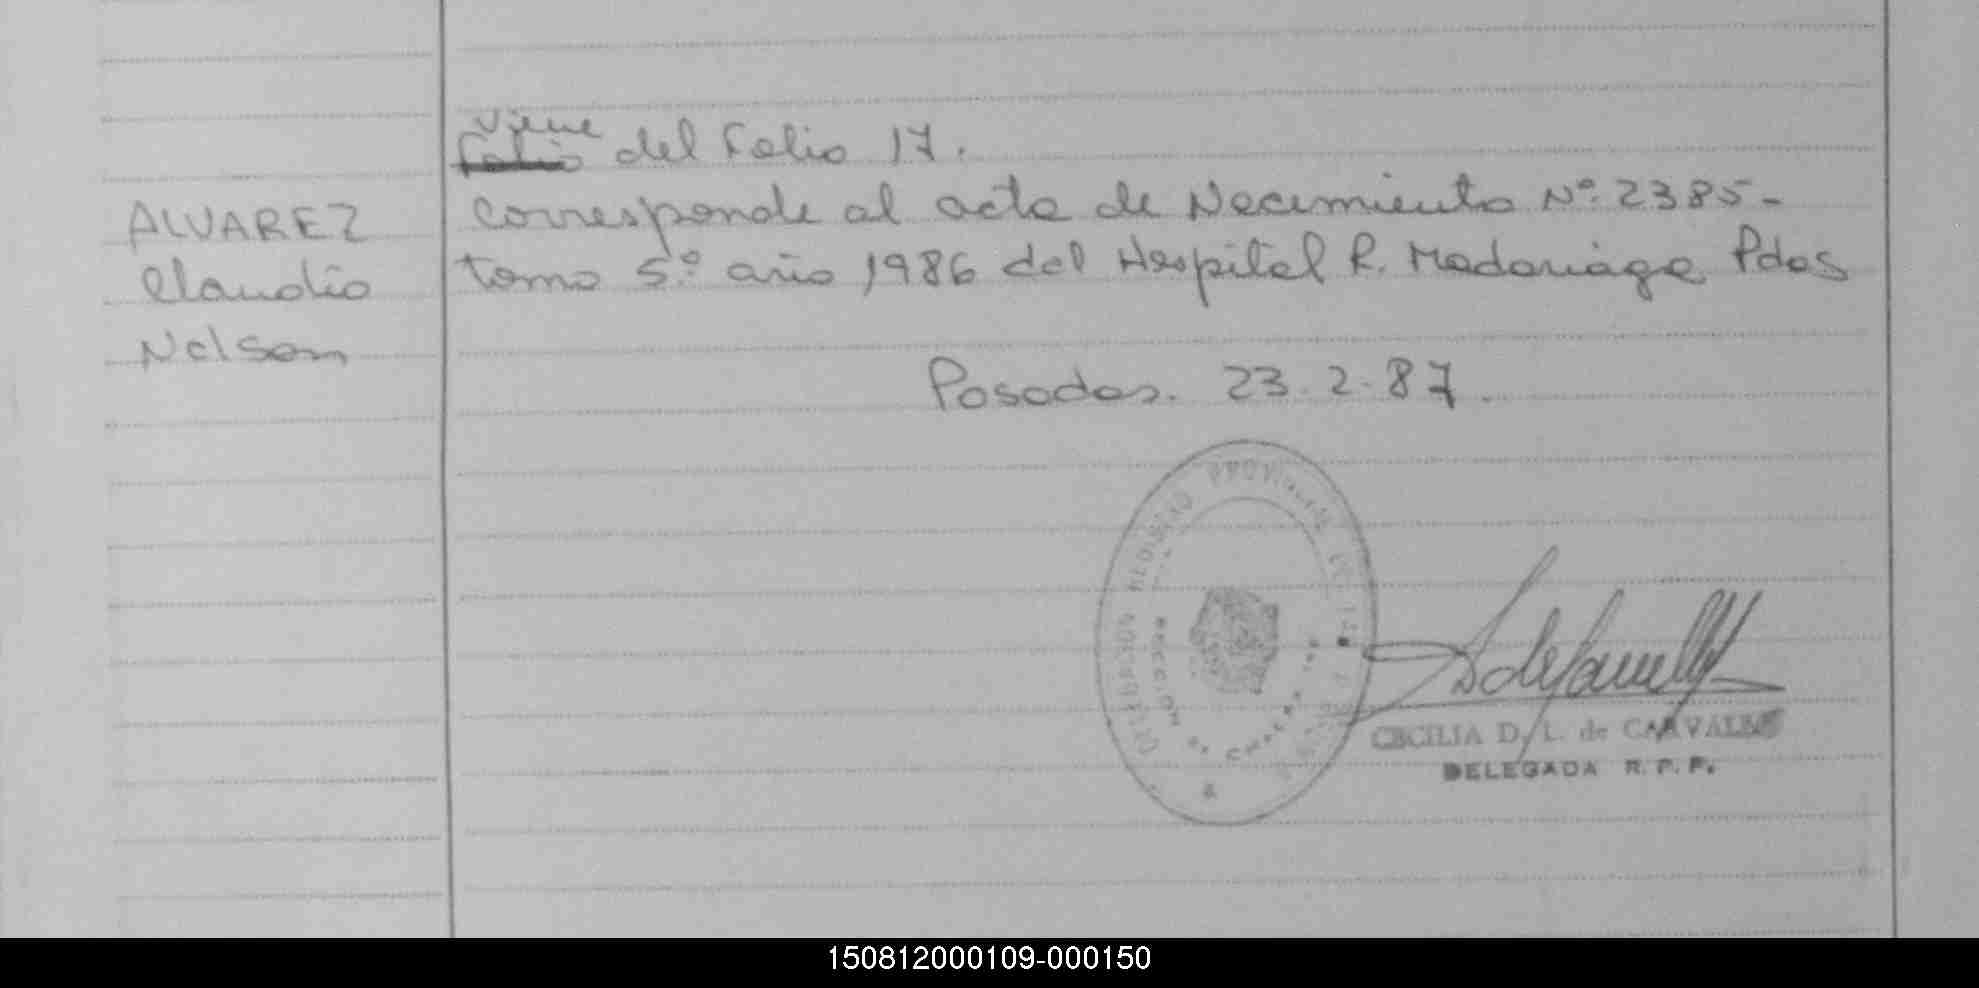 Viene
Folio del Folio 17.
ALVAREZ
Claudio
Nelson
Corresponde al acta de Nacimiento Nº 2385-
tomo 5º año 1986 del Hospital R. Madariaga Pdas
Posadas. 23.2.87.
DELEGACION REGISTRO PROVINCIAL DE LAS PERSONAS
CECILIA D. L. de CARVALHO
DELEGADA R. P. P.
150812000109-000150